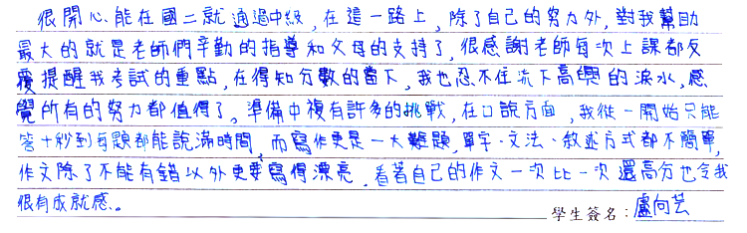 很開心能在國二就通過中級,在這一路上,除了自己的努力外,對我幫助
最大的就是老師們辛勤的指導和父母的支持了,很感謝老師每次上課都反
覆提醒我考試的重點,在得知分數的當下,我也忍不住流下高興的淚水,感
覺所有的努力都值得了。準備中複有許多的挑戰,在口說方面,我從一開始只能
答十秒到每題都能說滿時間,而寫作更是一大難題,單字、文法、敘述方式都不簡單,
作文除了不能有錯以外更要寫得漂亮,看著自己的作文一次比一次還高分也令我
很有成就感。
學生簽名:盧向芸